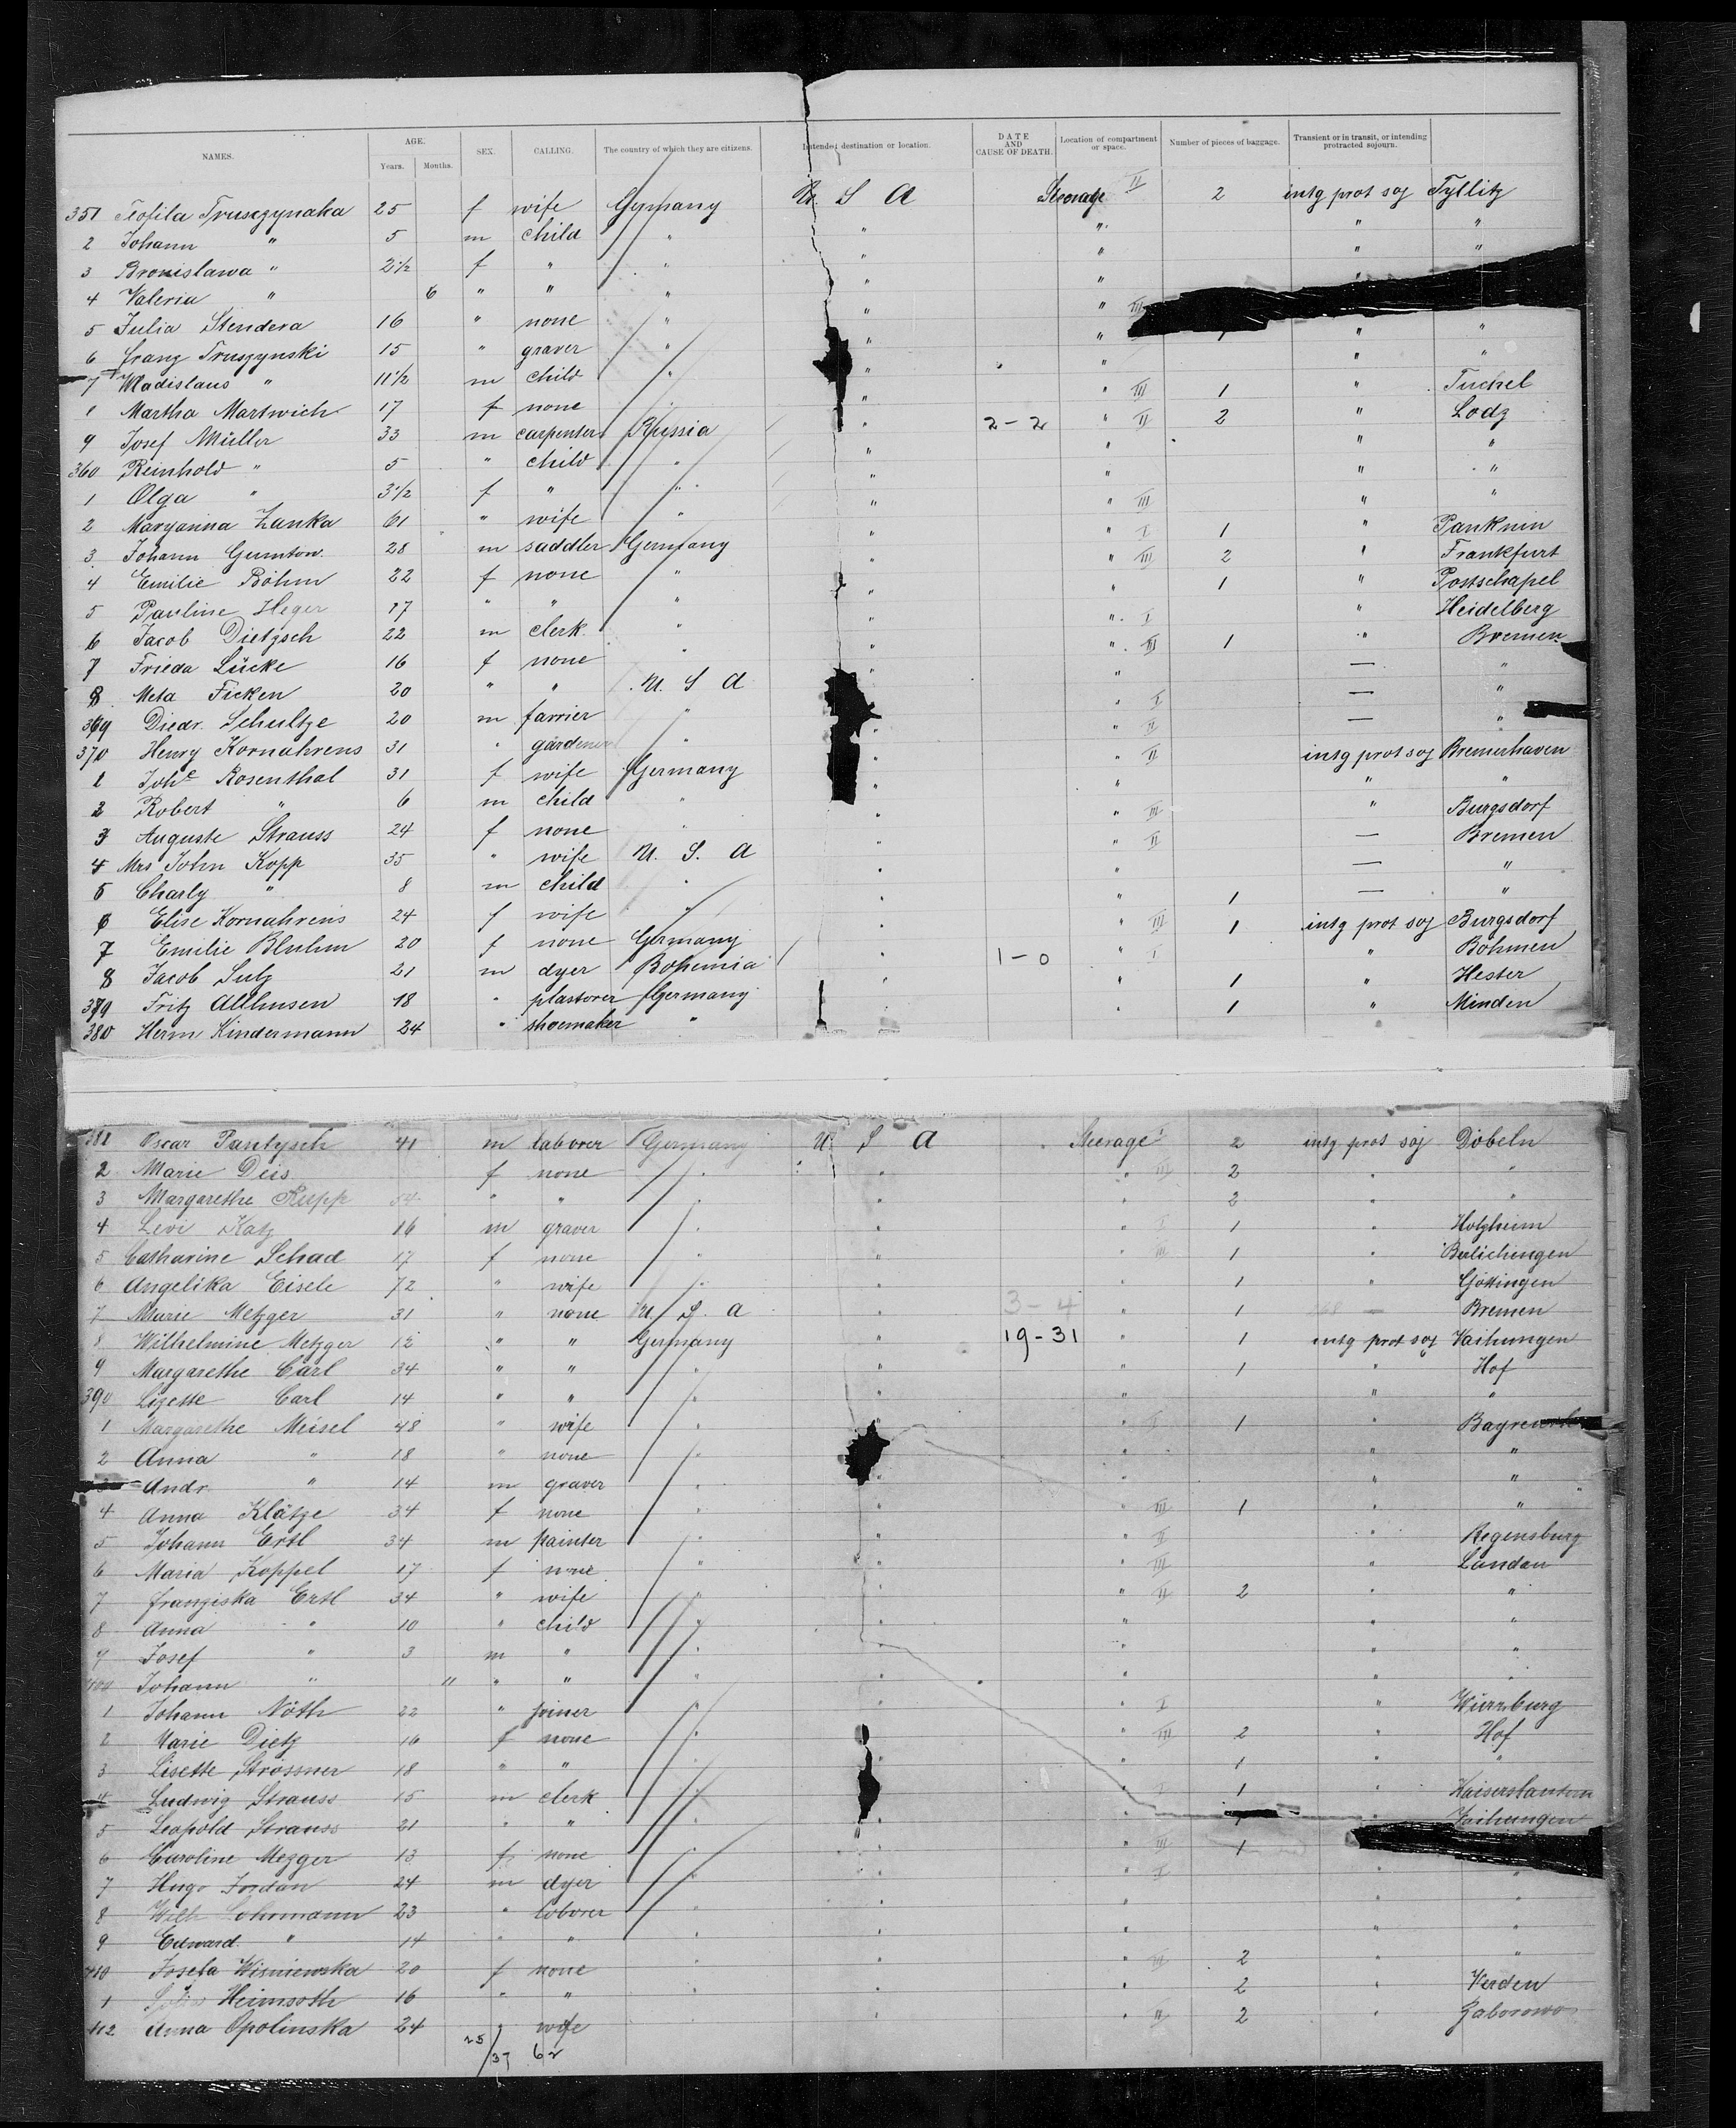 NAMES. AGE. Years. Months. SEX. CALLING. The country of which they are citizens. Intended destination or location. DATE AND CAUSE OF DEATH. Location of compartment or space. Number of pieces of baggage. Transient or in transit, or intending protracted sojourn.
351 Teofila 25 f wife Germany U. S A Steerage II 2 intg prot soj Tyllitz
2 Johann " 5 m child " " " " "
3 Bronislawa " 2 1/2 f " " " " " "
4 Valeria " 6 " " " " " "
5 Julia Stendera 16 " none " " " III
6 Franz Truszynski 15 " graver " " " " "
7 Wladislaus " 11 1/2 m child " " " " "
8 Martha Martwich 17 f none " " III 1 " Tuchel
9 Josef Müller 33 m carpenter Russia " 2-2 " II 2 " Lodz
360 Reinhold " 5 " child " " " " "
1 Olga " 3 1/2 f " " " " " "
2 Maryanna Zanka 61 " wife " " " III " "
3 Johann Gumtow 28 m saddler Germany " " I 1 " Panknin
4 Emilie Böhm 22 f none " " " III 2 " Frankfurt
5 Pauline Heger 17 " " " " " 1 " Postschapel
6 Jacob Dietzsch 22 m clerk " " " I " Heidelberg
7 Frieda Lücke 16 f none " " " III 1 " Bremen
8 Meta Ficken 20 " " U. S A " " — "
369 Diedr. Schultze 20 m farrier " " " I — "
370 Henry Kornahrens 31 " gardener " " " II — "
1 Johe Rosenthal 31 f wife Germany " " II intg prot soj Bremerhaven
2 Robert " 6 m child " " " " "
3 Auguste Strauss 24 f none " " " III " Burgsdorf
4 Mrs John Kopp 35 " wife U. S. A " " II — Bremen
5 Charly " 8 m child " " " — "
6 Elise Kornahrens 24 f wife " " " 1 — "
7 Emilie Bluhm 20 f none Germany " " III 1 intg prot soj Burgsdorf
8 Jacob Lutz 21 m dyer Bohemia " 1-0 " I " Böhmen
379 Fritz Allhusen 18 " plasterer Germany " " 1 " Hester
380 Herm Kindermann 24 " shoemaker " " " 1 " Minden
381 Oscar Pantzsch 41 m laborer Germany U S A Steerage I 2 intg prot soj Döbeln
2 Marie Deis f none " " " III 2 " "
3 Margarethe Rupp 54 " " " " " 2 " "
4 Levi Katz 16 m graver " " " I 1 " Holzheim
5 Catharine Schad 17 f none " " " III 1 " Berlichingen
6 Angelika Eisele 72 " wife " " " 1 " Göttingen
7 Marie Metzger 31 " none U. S. A " 3-4 " 1 — Bremen
8 Wilhelmine Metzger 12 " " Germany " 19-31 " 1 intg prot soj Vaihungen
9 Margarethe Carl 34 " " " " " 1 " Hof
390 Lizette Carl 14 " " " " " " "
1 Margarethe Meisel 48 " wife " " " II 1 "
2 Anna " 18 " none " " " " "
3 Andr. " 14 m graver " " " " "
4 Anna Klätze 34 f none " " " III 1 " "
5 Johann Ertl 34 m painter " " " II " Regensburg
6 Maria Koppel 17 f none " " " III " Landau
7 Franziska Ertl 34 " wife " " " II 2 " "
8 Anna " 10 " child " " " " "
9 Josef " 3 m " " " " " "
400 Johann " 11 " " " " " " "
1 Johann Nöth 22 " joiner " " " I " Würzburg
2 Marie Dietz 16 f none " " " III 2 " Hof
3 Lisette Strössner 18 " " " " " 1 " "
4 Ludwig Strauss 15 m clerk " " " I 1 " Kaiserslautern
5 Leopold Strauss 21 " " " " " 1 " Vaihungen
6 Caroline Mezger 13 f none " " " III 1
7 Hugo Jordan 24 m dyer " " " I " "
8 Wilh Lohrmann 23 " laborer " " " " "
9 Edward " 14 " " " " " " "
410 Josefa Wisniewska 20 f none " " " III 2 " "
1 Heimsoth 16 " " " " 2 " Verden
412 Anna Opolinska 24 " wife " " II 2 " Zaborowo
25/37 62